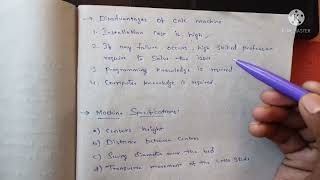 → Disadvantages of CNC machine
1. Installation cost is high.
2. If any failure occurs, high skilled profession
require to solve the issue
3. Programming knowledge is required
4. Computer knowledge is required.
→ Machine Specifications:
a) Centers height
b) Distance between centers
c) Swing diameter over the bed
d) Transverse movement of the cross slide